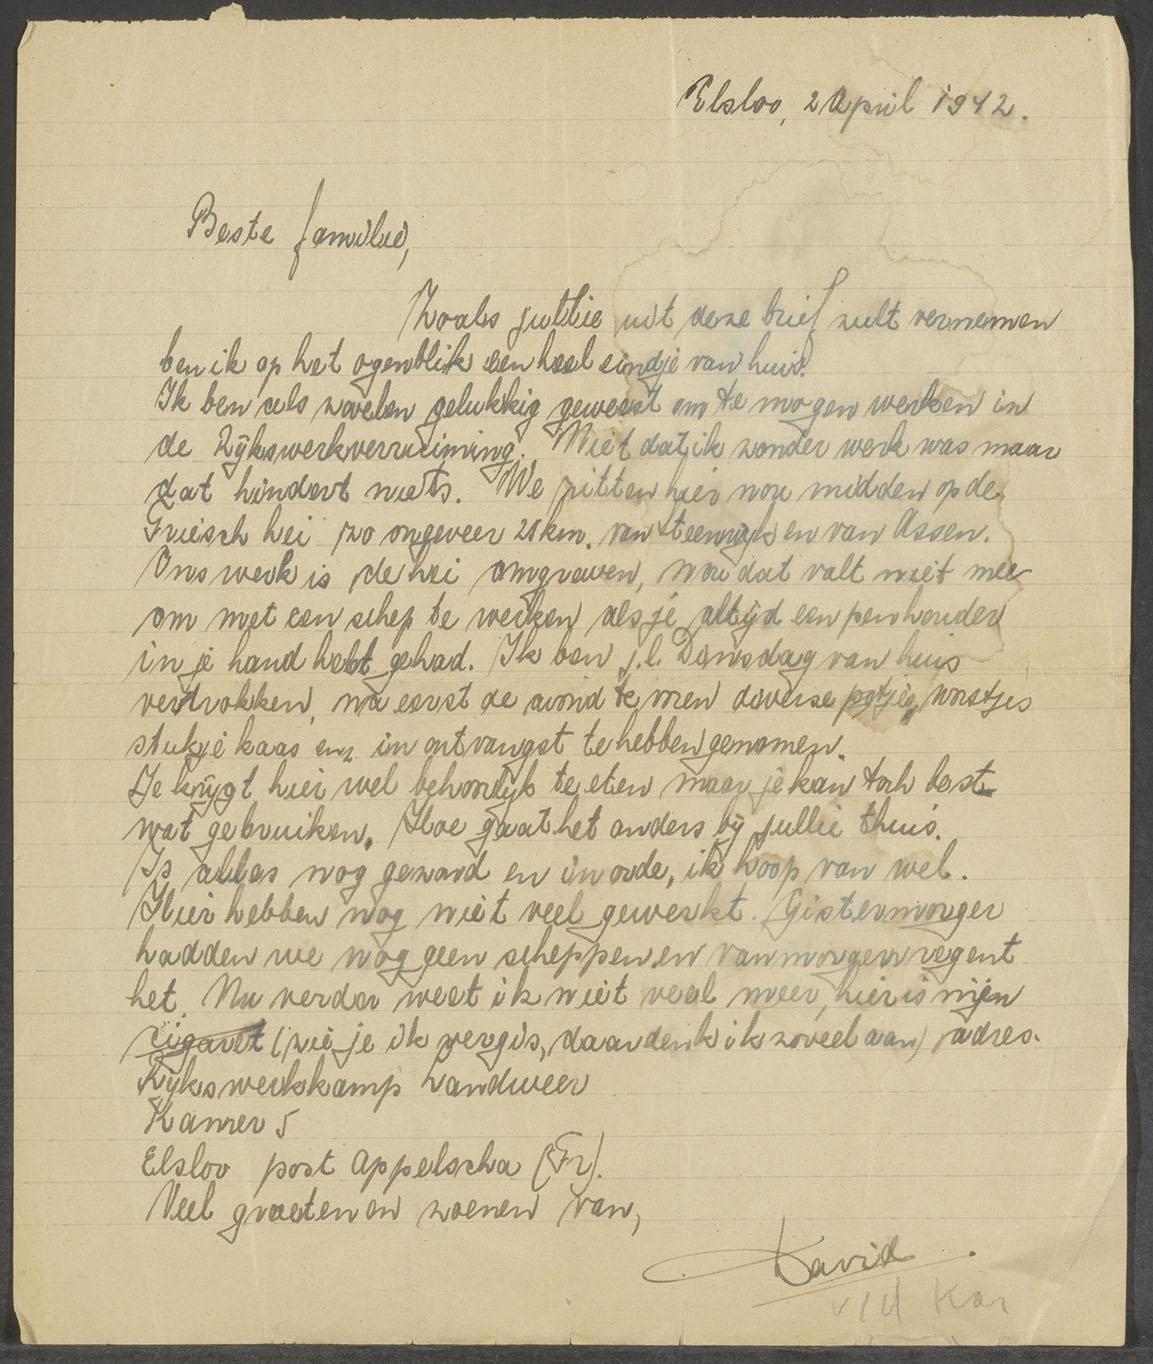 Elsloo, 2 April 1942.
Beste familie,
Zoals jullie uit deze brief zult vernemen
ben ik op het ogenblik een heel eindje van huis.
Ik ben als zovelen gelukkig geweest om te mogen werken in
de Rijkswerkverruiming. Niet dat ik zonder werk was maar
dat hindert niets. We zitten hier nou midden op de
Friesch hei zo ongeveer 20 km. van Steenwijk en van Assen.
Ons werk is de hei omgraven, nou dat valt niet mee
om met een schep te werken als je altijd een penhouder
in je hand hebt gehad. Ik ben j.l. Dinsdag van huis
vertrokken, na eerst de avond te voren diverse potjes, worstjes
stukje kaas enz in ontvangst te hebben genomen.
Je krijgt hier wel behoorlijk te eten maar je kan toch best
wat gebruiken. Hoe gaat het anders bij jullie thuis.
Is alles nog gezond en in orde, ik hoop van wel.
Hier hebben nog niet veel gewerkt. Gistermorgen
hadden we nog geen scheppen en vanmorgen regent
het. Nu verder weet ik niet veel meer, hier is mijn
cigaret (zie je ik vergis, daar denk ik zoveel aan) adres.
Rijkswerkkamp Landweer
Kamer 5
Elsloo post Appelscha (Fr).
Veel groeten en zoenen van,
David
v/d Kar